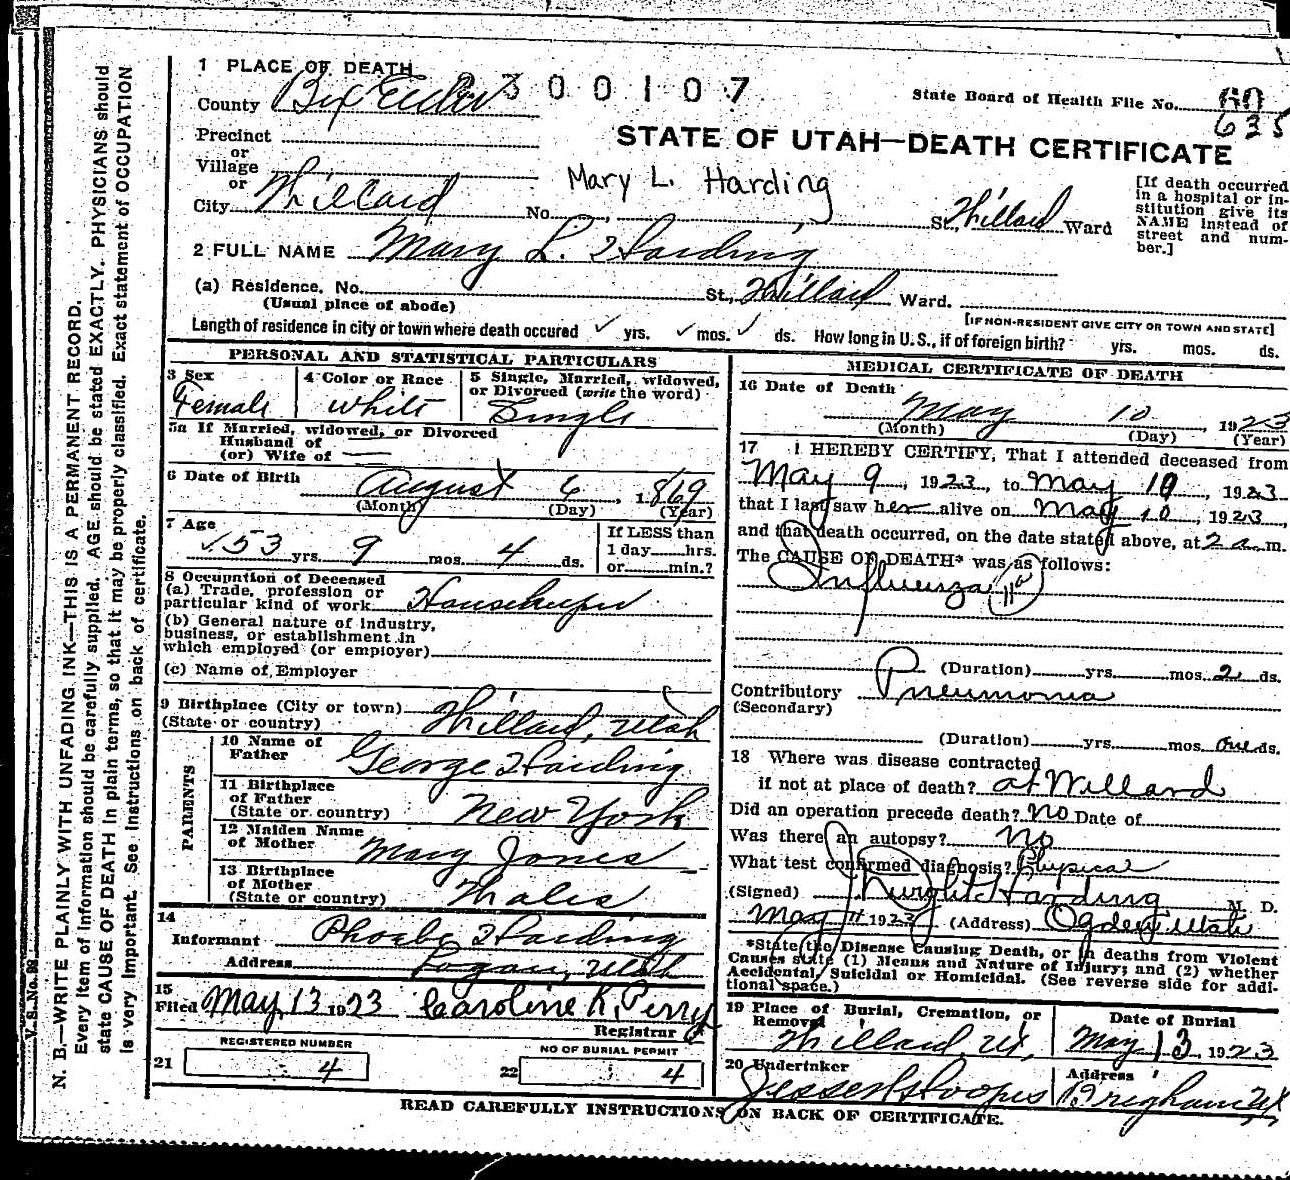 1 PLACE OF DEATH
2300107
State Board of Health File No. 60
635
County Box Elder
STATE OF UTAH—DEATH CERTIFICATE
Precinct
or
Village
or
City Willard No. St., Willard Ward
Mary L. Harding
[If death occurred
in a hospital or in-
stitution give its
NAME instead of
street and num-
ber.]
2 FULL NAME Mary L. Harding
(a) Residence, No. St., Willard Ward.
(Usual place of abode)
[IF NON-RESIDENT GIVE CITY OR TOWN AND STATE]
Length of residence in city or town where death occured ✓ yrs. ✓ mos. ✓ ds. How long in U.S., if of foreign birth? yrs. mos. ds.
PERSONAL AND STATISTICAL PARTICULARS
3 Sex
Female
4 Color or Race
White
5 Single, Married, widowed,
or Divorced (write the word)
Single
5a If Married, widowed, or Divorced
Husband of
(or) Wife of —
6 Date of Birth August 6, 1869
(Month) (Day) (Year)
7 Age
✓53 yrs. 9 mos. 4 ds.
If LESS than
1 day hrs.
or min.?
8 Occupation of Deceased
(a) Trade, profession or
particular kind of work Housekeeper
(b) General nature of industry,
business, or establishment in
which employed (or employer)
(c) Name of Employer
9 Birthplace (City or town) Willard, Utah
(State or country)
PARENTS
10 Name of
Father George Harding
11 Birthplace
of Father
(State or country) New York
12 Maiden Name
of Mother Mary Jones
13 Birthplace
of Mother
(State or country) Wales
14
Informant Phoebe Harding
Address Logan, Utah
15
Filed May 13 1923 Caroline K. Perry
Registrar
REGISTERED NUMBER
21 4
NO OF BURIAL PERMIT
22 4
MEDICAL CERTIFICATE OF DEATH
16 Date of Death
May 10, 1923
(Month) (Day) (Year)
17 I HEREBY CERTIFY, That I attended deceased from
May 9, 1923, to May 10, 1923
that I last saw her alive on May 10, 1923,
and that death occurred, on the date stated above, at 2 a m.
The CAUSE OF DEATH* was as follows:
Influenza 11a
(Duration) yrs. mos. 2 ds.
Contributory Pneumonia
(Secondary)
(Duration) yrs. mos. one ds.
18 Where was disease contracted
if not at place of death? at Willard
Did an operation precede death? No Date of
Was there an autopsy? no
What test confirmed diagnosis? Physical
(Signed) Dwight Harding M. D.
May 11 1923 (Address) Ogden, Utah
*State the Disease Causing Death, or in deaths from Violent
Causes state (1) Means and Nature of Injury; and (2) whether
Accidental, Suicidal or Homicidal. (See reverse side for addi-
tional space.)
19 Place of Burial, Cremation, or
Removal
Willard Ut,
Date of Burial
May 13 1923
20 Undertaker
Hoopes
Address
Brigham Ut
READ CAREFULLY INSTRUCTIONS ON BACK OF CERTIFICATE.
V. S. No. 98
N. B.—WRITE PLAINLY WITH UNFADING INK—THIS IS A PERMANENT RECORD.
Every item of information should be carefully supplied. AGE should be stated EXACTLY. PHYSICIANS should
state CAUSE OF DEATH in plain terms, so that it may be properly classified. Exact statement of OCCUPATION
is very important. See instructions on back of certificate.